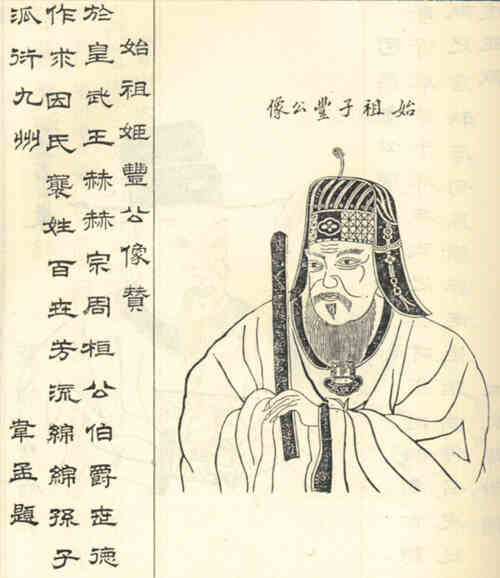 始祖子豐公像
始祖姬豐公像贊
於皇武王赫赫宗周桓公伯爵世德
作求因氏襃姓百世芳流綿綿孫子
派衍九州 韋孟題